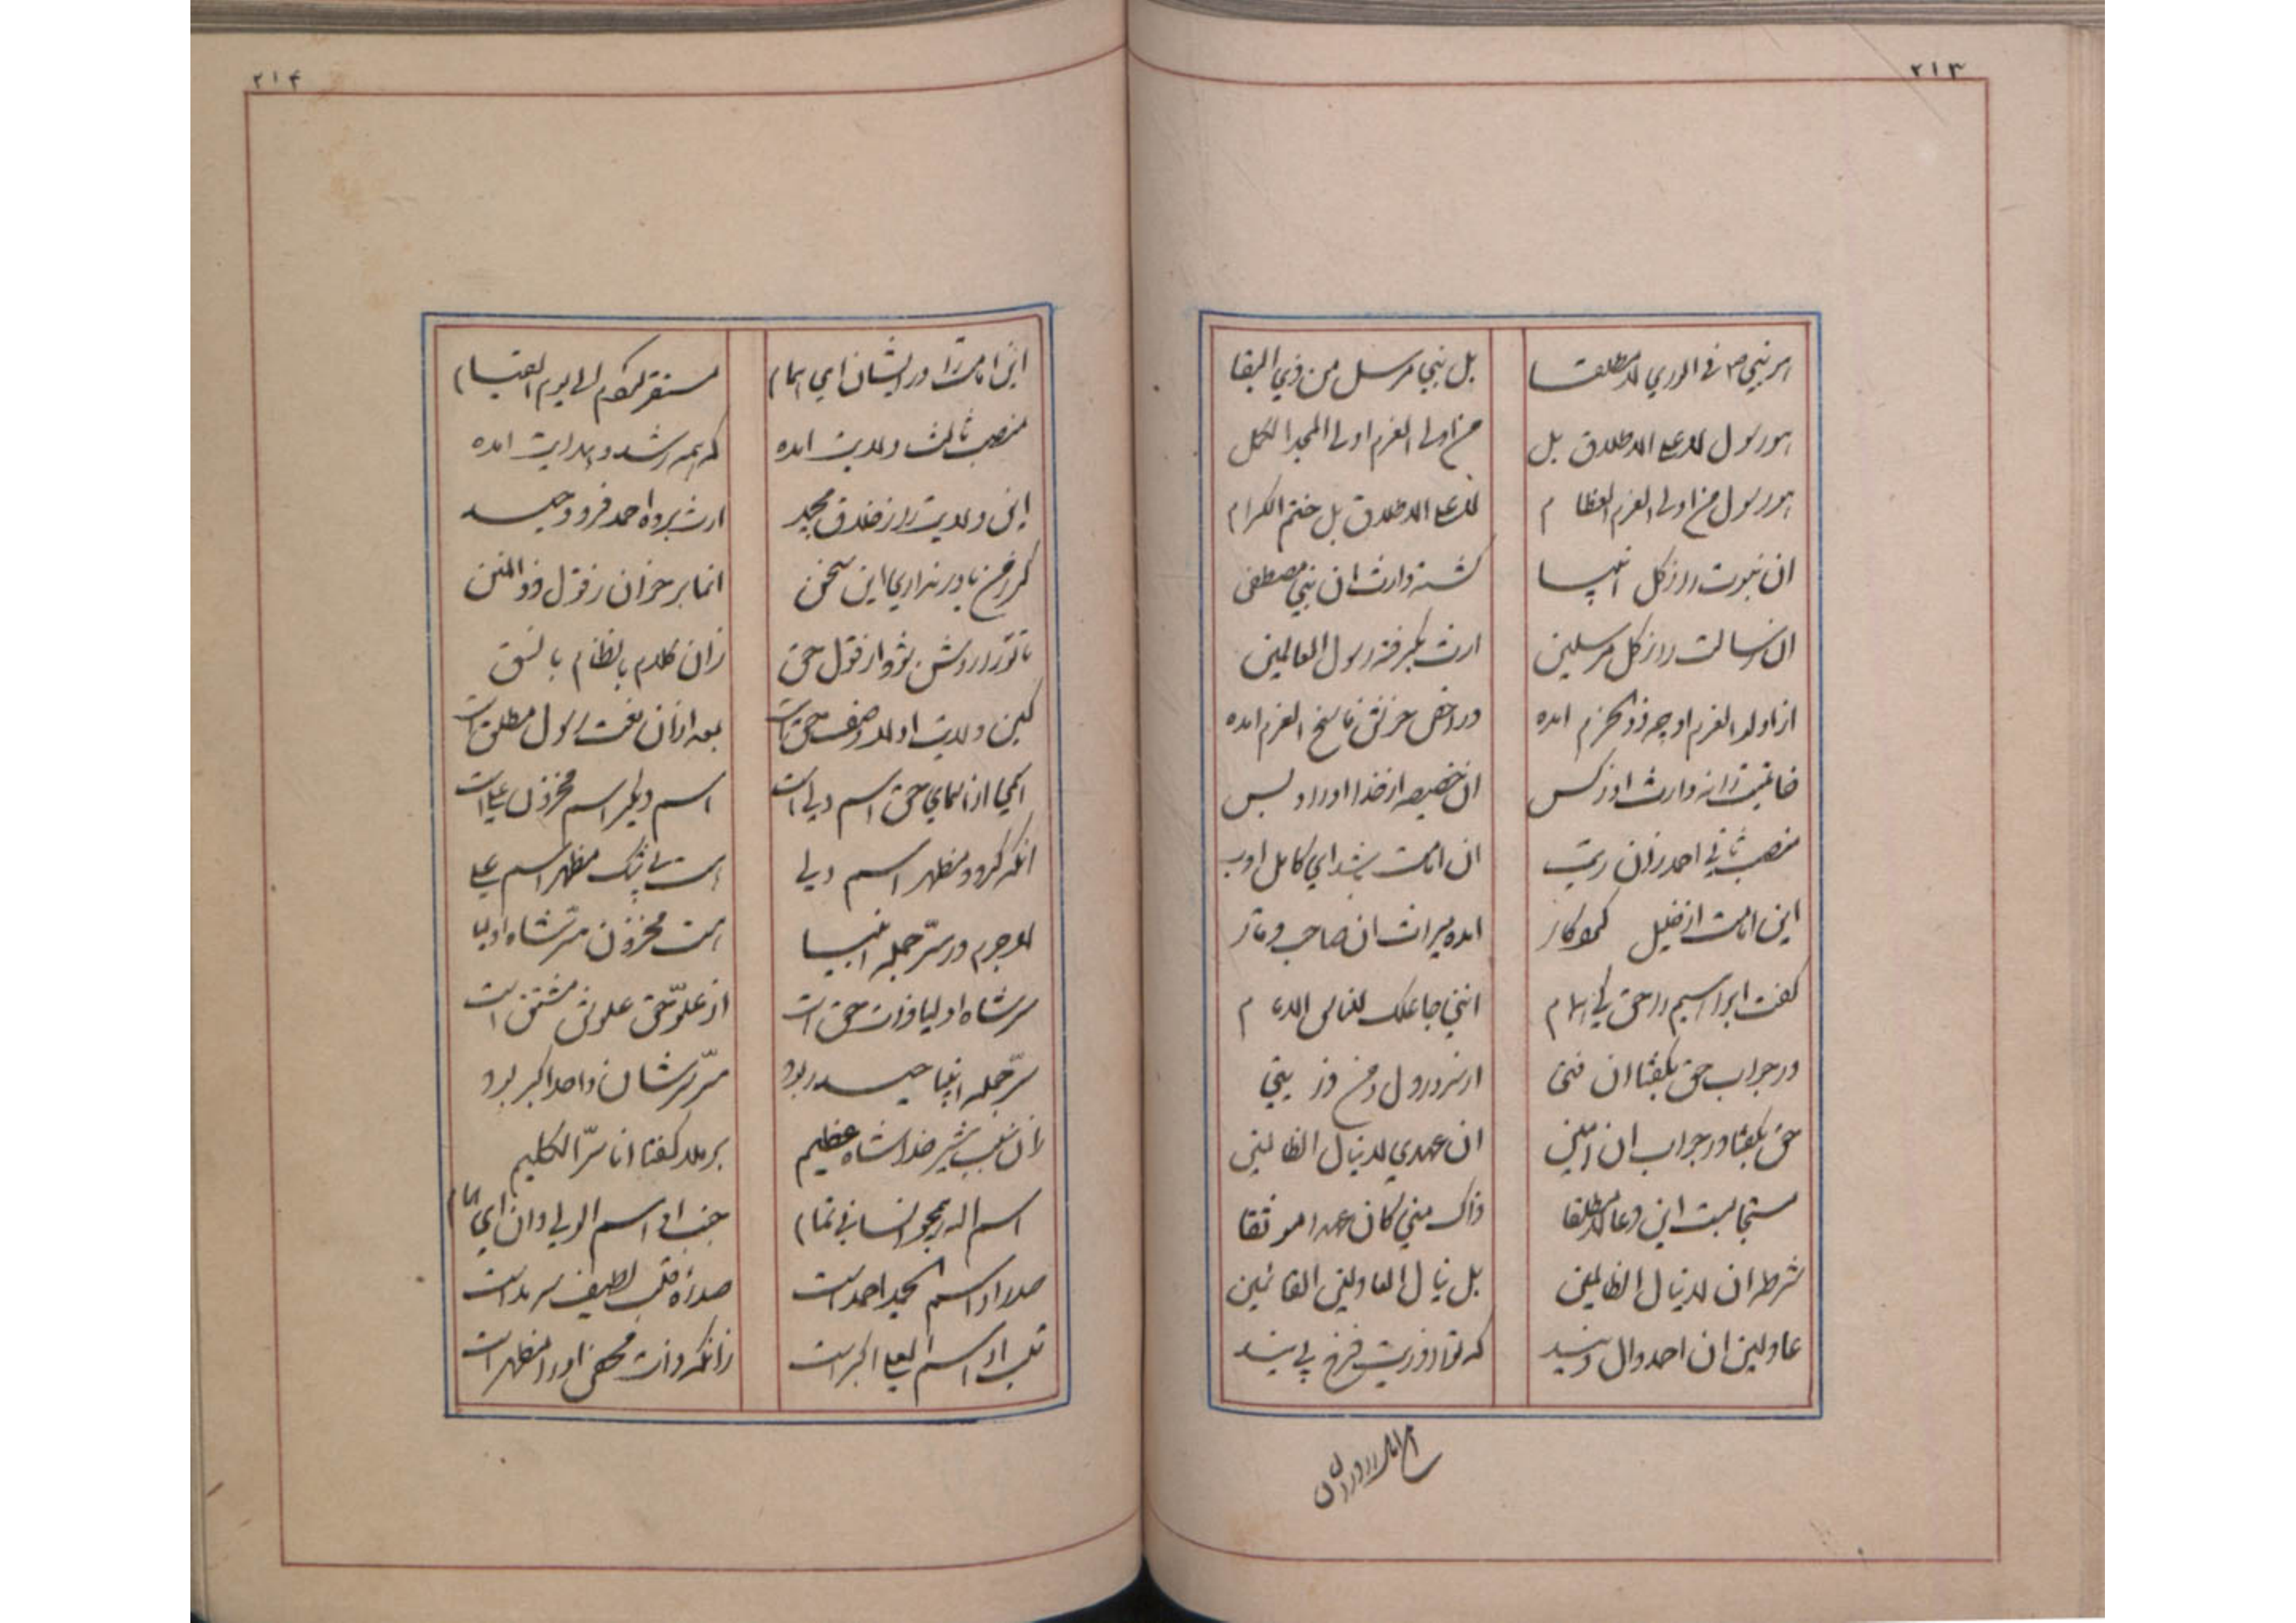 ۲۱۳
هر نبی فی الوری لا مطلقا
بل نبی مرسل من ذی البقا
هو رسول لا علی الاطلاق بل
من اولی العزم اولی المجد الکمل
هو رسول من اولی العزم العظام
لا علی الاطلاق بل ختم الکرام
ان نبوت را ز کل انبیا
گشته وارث ان نبی مصطفی
ان رسالت را ز کل مرسلین
ارث بگرفته رسول العالمین
از اولو العزم او چه ذو الحزم امده
در اخص عزتش ناسخ العزم امده
خاتمیت را نه وارث او ز کس
ان خصیصه از خدا او را و بس
منصب ثانی احمد زان ربت
ان امامت باشد ای کامل ادب
این امامت از خلیل کردگار
امده میراث ان صاحب وقار
گفت ابراهیم را حق کی امام
اننی جاعلک للناس الامام
در جواب حق بگفتا ان فتی
از سرور دل و من ذریتی
حق بگفتا در جواب ان امین
ان عهدی لا ینال الظالمین
مستجابست این دعا لا مطلقا
ذاک منی کان عهدا موثقا
شرط ان لا ینال الظالمین
بل ینال العادلین القائمین
عادلین ان احمد وال ویند
که تو را ذریت فرخ پی یند
این امامت را در ایشان
۲۱۴
این امامت را در ایشان ای همام
مستقر کردم الی یوم القیام
منصب ثالث ولایت امده
که همه رشد و هدایت امده
این ولایت را ز خلاق مجید
ارث برده احمد فرد وحید
گر ز من باور نداری این سخن
انما بر خوان ز قول ذو المنن
تا تو را روشن شود از قول حق
زان کلام با نظام با نسق
کین ولایت اولا وصف حق است
بعد از ان نعت رسول مطلق است
اکمی از اسمای حق اسم ولی است
اسم دیگر اسم مخزون علی است
انکه گردد مظهر اسم ولی
هست بی شک مظهر اسم علی
لاجرم در سر جمله انبیا
هست مخزون سر شاه اولیا
سر شاه اولیا ذات حق است
از علو حق علوش مشتق است
سر جمله انبیا حیدر بود
سر سرشان واحد اکبر بود
زان سبب شیر خدا شاه عظیم
بر ملا گفتا انا سر الکلیم
اسم اله هیجو انسانی تمام
جنب او اسم الولی دان ای همام
صدر او اسم المجید احمد است
صدر او قلب لطیف سرمد است
قلب او اسم العلی اکبر است
زانکه ذات محض او را مظهر است